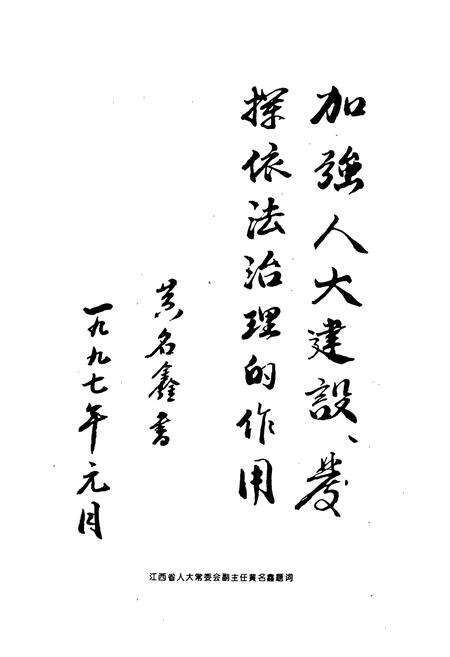 加強人大建設、發
揮依法治理的作用
黄名鑫書
一九九七年元月
江西省人大常委会副主任黄名鑫题词